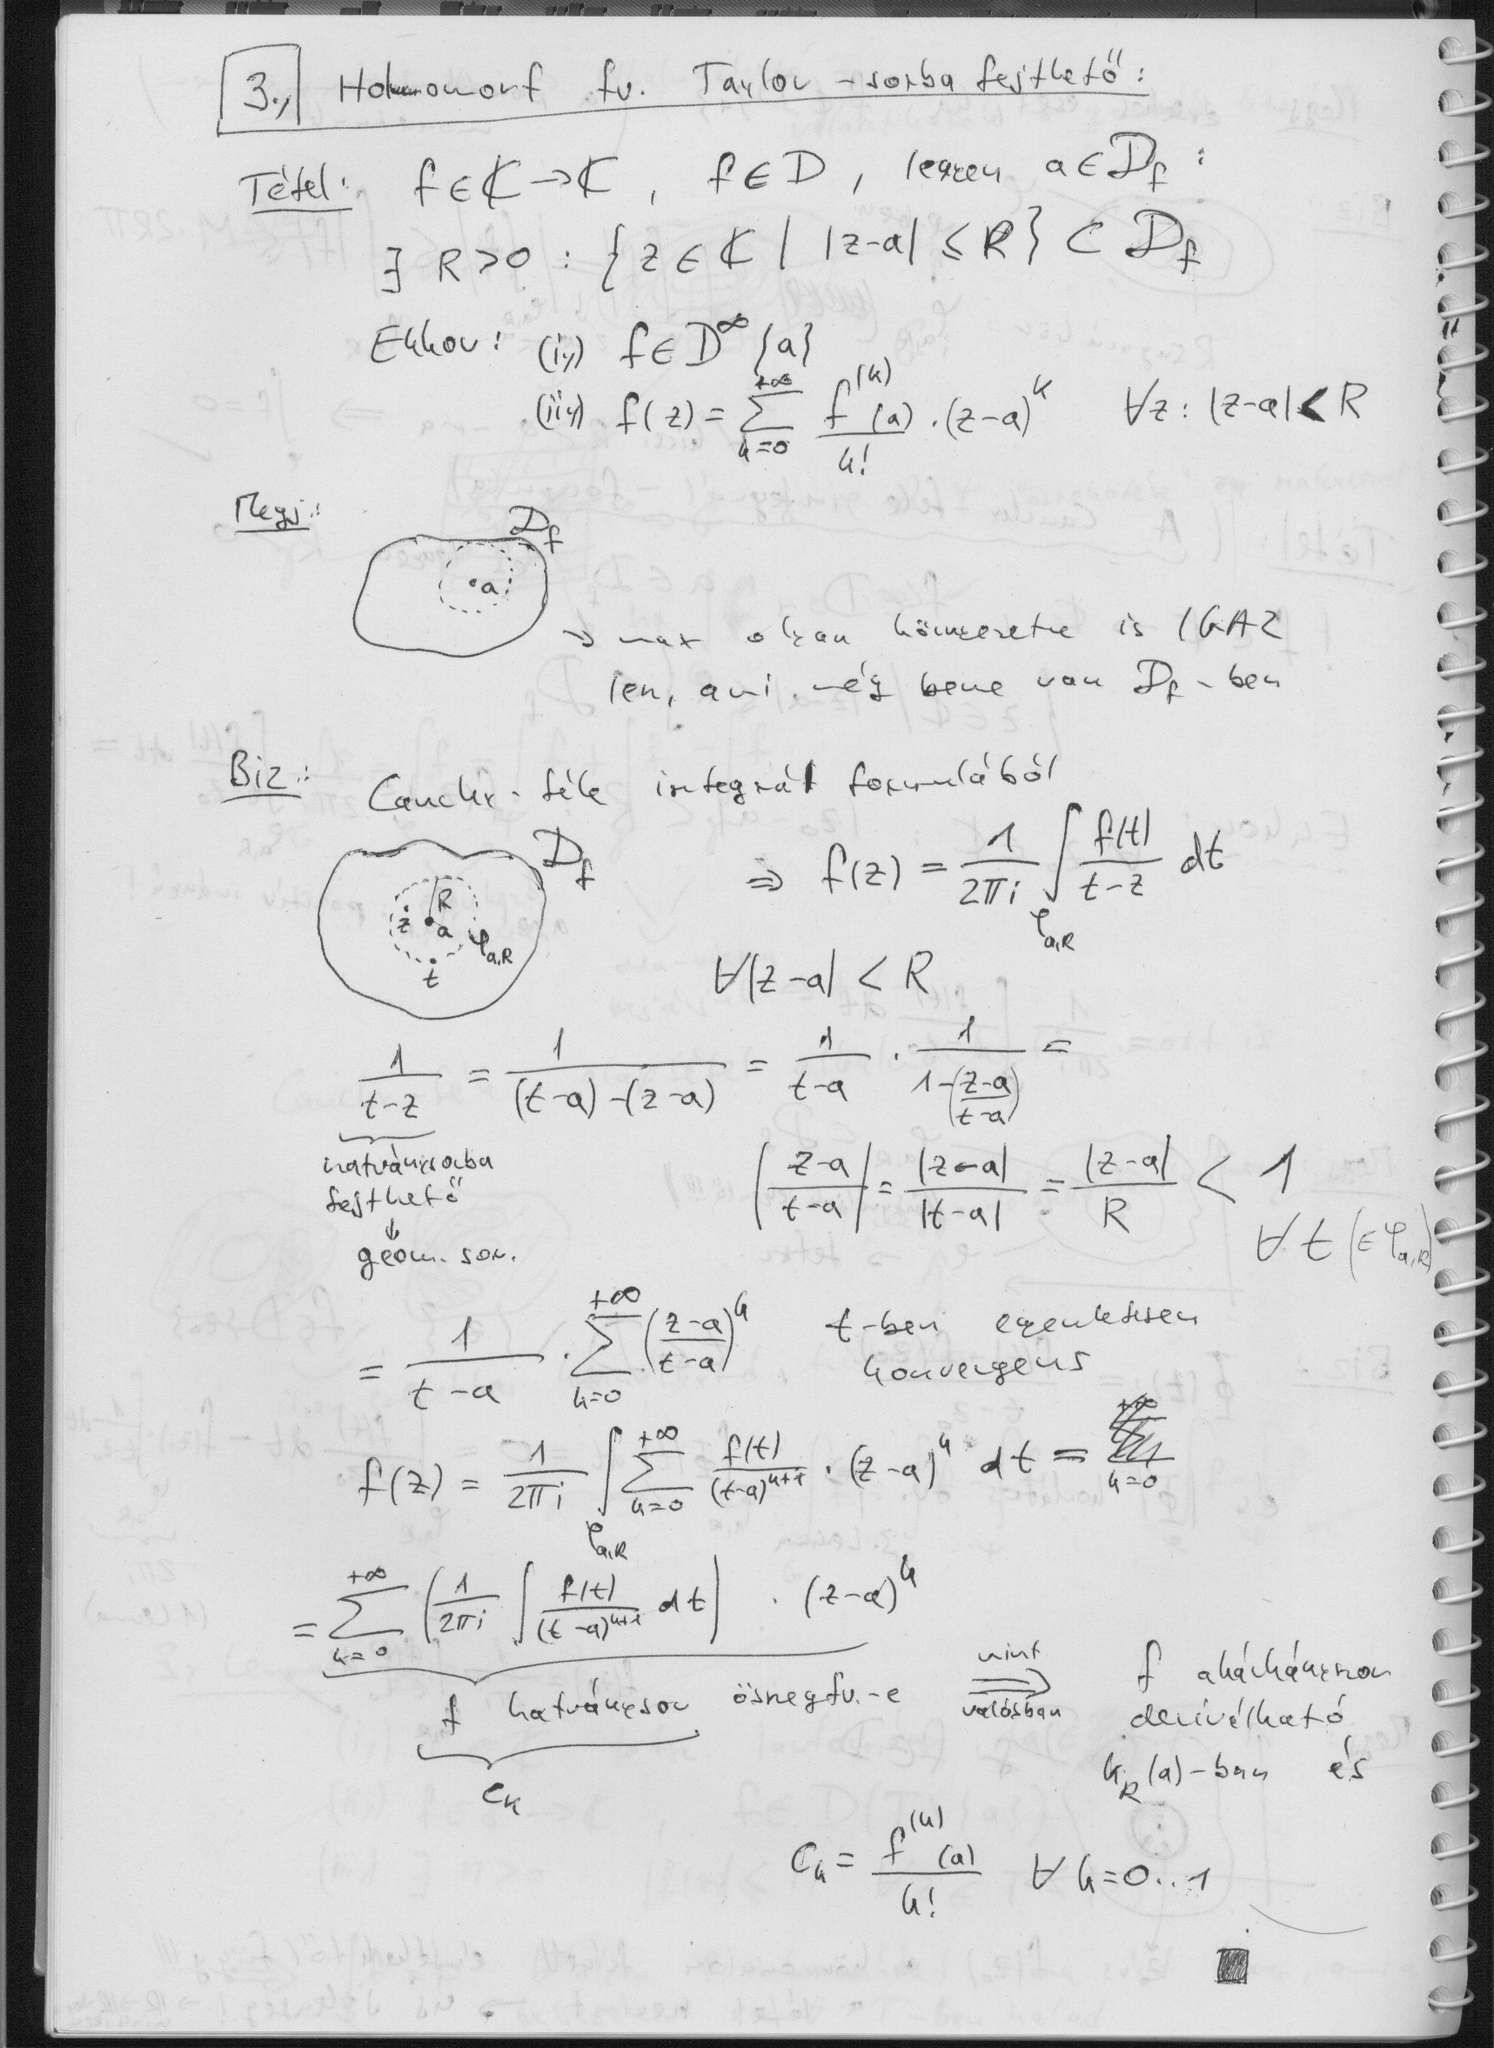 3.,) Holomorf fv. Taylor-sorba fejthető:
Tétel: f∈ℂ→ℂ, f∈D, legyen a∈D_f:
∃ R>0: {z∈ℂ | |z-a| ≤ R} ⊂ D_f
Ekkor: (i,) f∈D^∞{a}
(ii,) f(z) = Σ_{k=0}^{+∞} f^{(k)}(a)/k! · (z-a)^k ∀z: |z-a| < R
Megj.:
D_f
a
→ max olyan környezetre is IGAZ
len, ami még benne van D_f-ben
Biz.: Cauchy-féle integrál formulából
D_f
R
z
a
φ_{a,R}
t
⇒ f(z) = 1/(2πi) ∫_{φ_{a,R}} f(t)/(t-z) dt
∀|z-a| < R
1/(t-z) = 1/((t-a)-(z-a)) = 1/(t-a) · 1/(1-((z-a)/(t-a))) =
hatványsorba
fejthető
↓
geom. sor.
|(z-a)/(t-a)| = |z-a|/|t-a| = |z-a|/R < 1
∀ t (∈ φ_{a,R})
= 1/(t-a) · Σ_{k=0}^{+∞} ((z-a)/(t-a))^k t-ben egyenletesen
konvergens
f(z) = 1/(2πi) ∫_{φ_{a,R}} Σ_{k=0}^{+∞} f(t)/(t-a)^{k+1} · (z-a)^k dt =
= Σ_{k=0}^{+∞} (1/(2πi) ∫ f(t)/(t-a)^{k+1} dt) · (z-a)^k
f hatványsor összegfv.-e
c_k
mint
⇒
valósban
f akárhányszor
deriválható
k_R(a)-ban és
c_k = f^{(k)}(a)/k! ∀ k=0..1